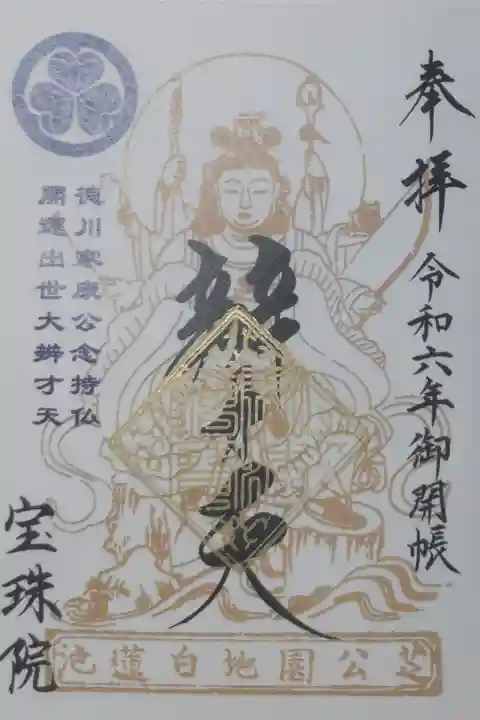 奉拝
令和六年御開帳
辨才天
徳川家康公念持仏
開運出世大辨才天
宝珠院
芝公園地白蓮池